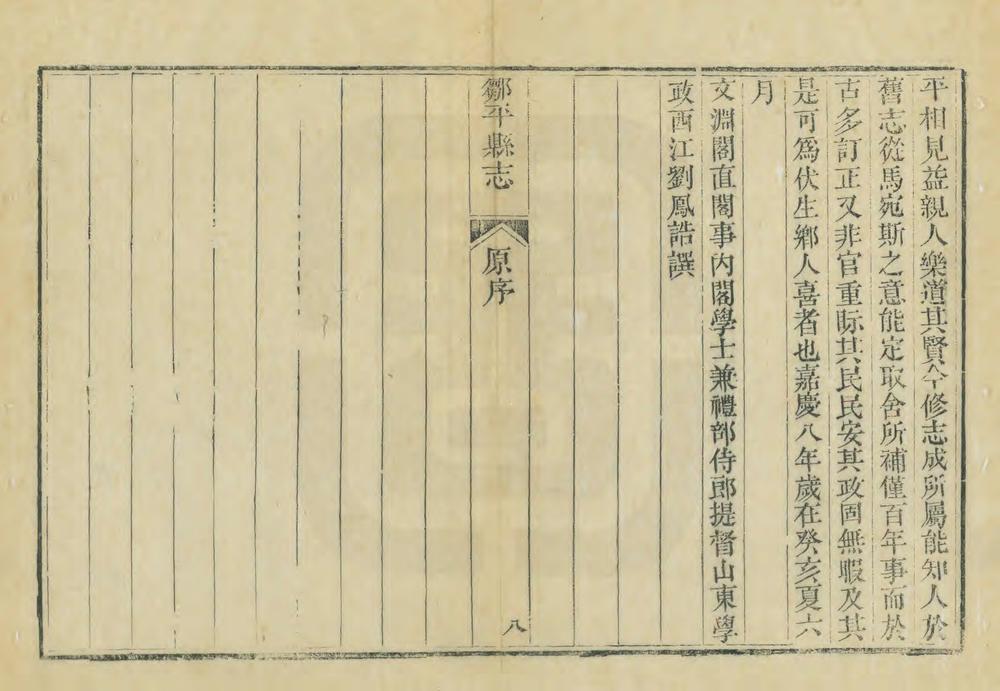 平相見益親人樂道其賢今修志成所屬能知人於
舊志從馬宛斯之意能定取舍所補僅百年事而於
古多訂正又非官重眎其民民安其政固無暇及其
是可爲伏生鄉人喜者也嘉慶八年歲在癸亥夏六
月
文淵閣直閣事內閣學士兼禮部侍郎提督山東學
政西江劉鳳誥譔
鄒平縣志
原序
八